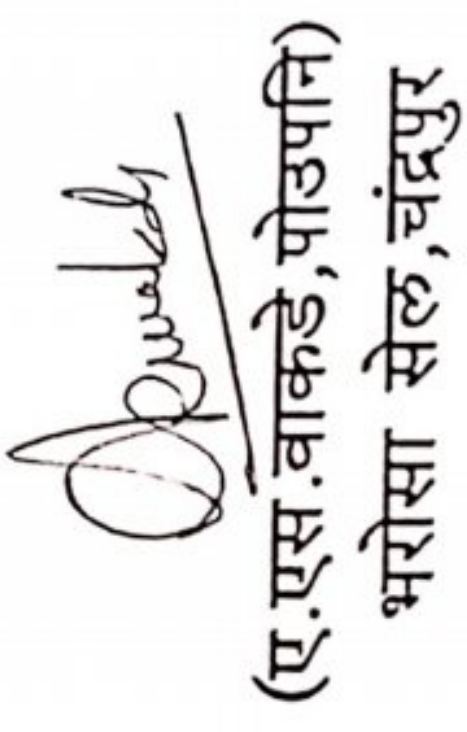 (ए.एस.वाकडे,पोउपनि)
भरोसा सेल,चंद्रपुर